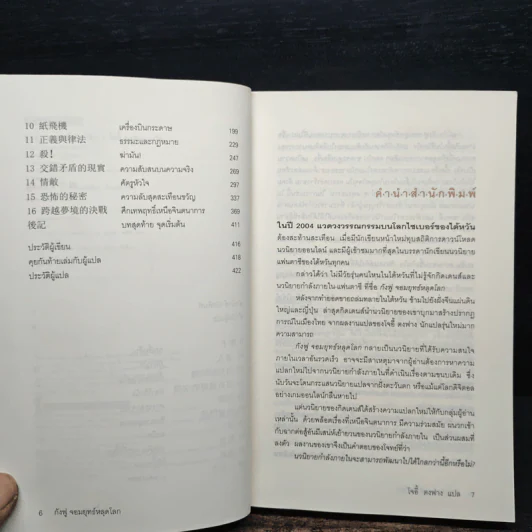 10 紙飛機 เครื่องบินกระดาษ 199
11 正義與律法 ธรรมะและกฎหมาย 229
12 殺! ฆ่ามัน! 247
13 交錯矛盾的現實 ความสับสนบนความจริง 269
14 情敵 ศัตรูหัวใจ 297
15 恐怖的秘密 ความลับสุดสะเทือนขวัญ 337
16 跨越夢境的決戰 ศึกเทพฤทธิ์เหนือจินตนาการ 369
後記 บทสุดท้าย จุดเริ่มต้น 411
ประวัติผู้เขียน 416
คุยกันท้ายเล่มกับผู้แปล 418
ประวัติผู้แปล 422
6 กังฟู จอมยุทธ์หลุดโลก
คำนำสำนักพิมพ์
ในปี 2004 แวดวงวรรณกรรมบนโลกไซเบอร์ของไต้หวัน
ต้องสะท้านสะเทือน เมื่อมีนักเขียนหน้าใหม่ทุบสถิติการดาวน์โหลด
นวนิยายออนไลน์ และมีผู้เข้าชมมากที่สุดในบรรดานักเขียนนวนิยาย
แฟนตาซีของไต้หวันทุกคน
กล่าวได้ว่า ไม่มีวัยรุ่นคนไหนในไต้หวันที่ไม่รู้จักกิดเดนส์และ
นวนิยายกำลังภายใน-แฟนตาซี ที่ชื่อ กังฟู จอมยุทธ์หลุดโลก
หลังจากทำยอดขายถล่มทลายในไต้หวัน ข้ามไปยังฝั่งจีนแผ่นดิน
ใหญ่และญี่ปุ่น ล่าสุดกิดเดนส์นำนวนิยายของเขาบุกมาสร้างปรากฏ
การณ์ในเมืองไทย จากผลงานแปลของใจอี้ ตงฟาง นักแปลรุ่นใหม่มาก
ความสามารถ
กังฟู จอมยุทธ์หลุดโลก กลายเป็นนวนิยายที่ได้รับความสนใจ
ภายในเวลาอันรวดเร็ว อาจจะมีสาเหตุมาจากผู้อ่านต้องการหาความ
แปลกใหม่ไปจากนวนิยายกำลังภายในที่ดำเนินเรื่องตามขนบเดิม ซึ่ง
นับวันจะโดนกระแสนวนิยายแปลจากฝั่งตะวันตก หรือแม้แต่โลกดิจิตอล
อย่างเกมออนไลน์กลืนหายไป
แต่นวนิยายของกิดเดนส์ได้สร้างความแปลกใหม่ให้กับกลุ่มผู้อ่าน
เหล่านั้น ด้วยพล็อตเรื่องที่เหนือจินตนาการ มีความร่วมสมัย ผนวกเข้า
กับฉากต่อสู้อันมีเสน่ห์เย้ายวนของนวนิยายกำลังภายใน เป็นส่วนผสมที่
ลงตัว ผลงานของเขาจึงเป็นคำตอบของโจทย์ที่ว่า
นวนิยายกำลังภายในจะสามารถพัฒนาไปได้ไกลกว่านี้อีกหรือไม่?
ใจอี้ ตงฟาง แปล 7